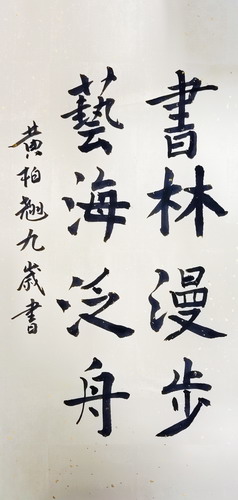 書林漫步
藝海泛舟
黄柏翹九歲書